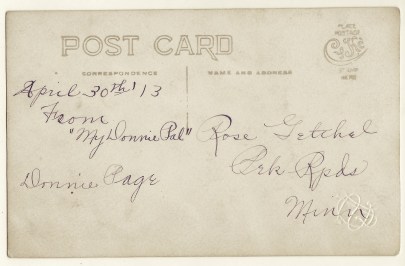 POST CARD
PLACE
POSTAGE
STAMP
HERE
CORRESPONDENCE
NAME AND ADDRESS
April 30th '13
From
"My Donnie Pal"
Donnie Page
Rose Getchel
Prk Rpds
Minn